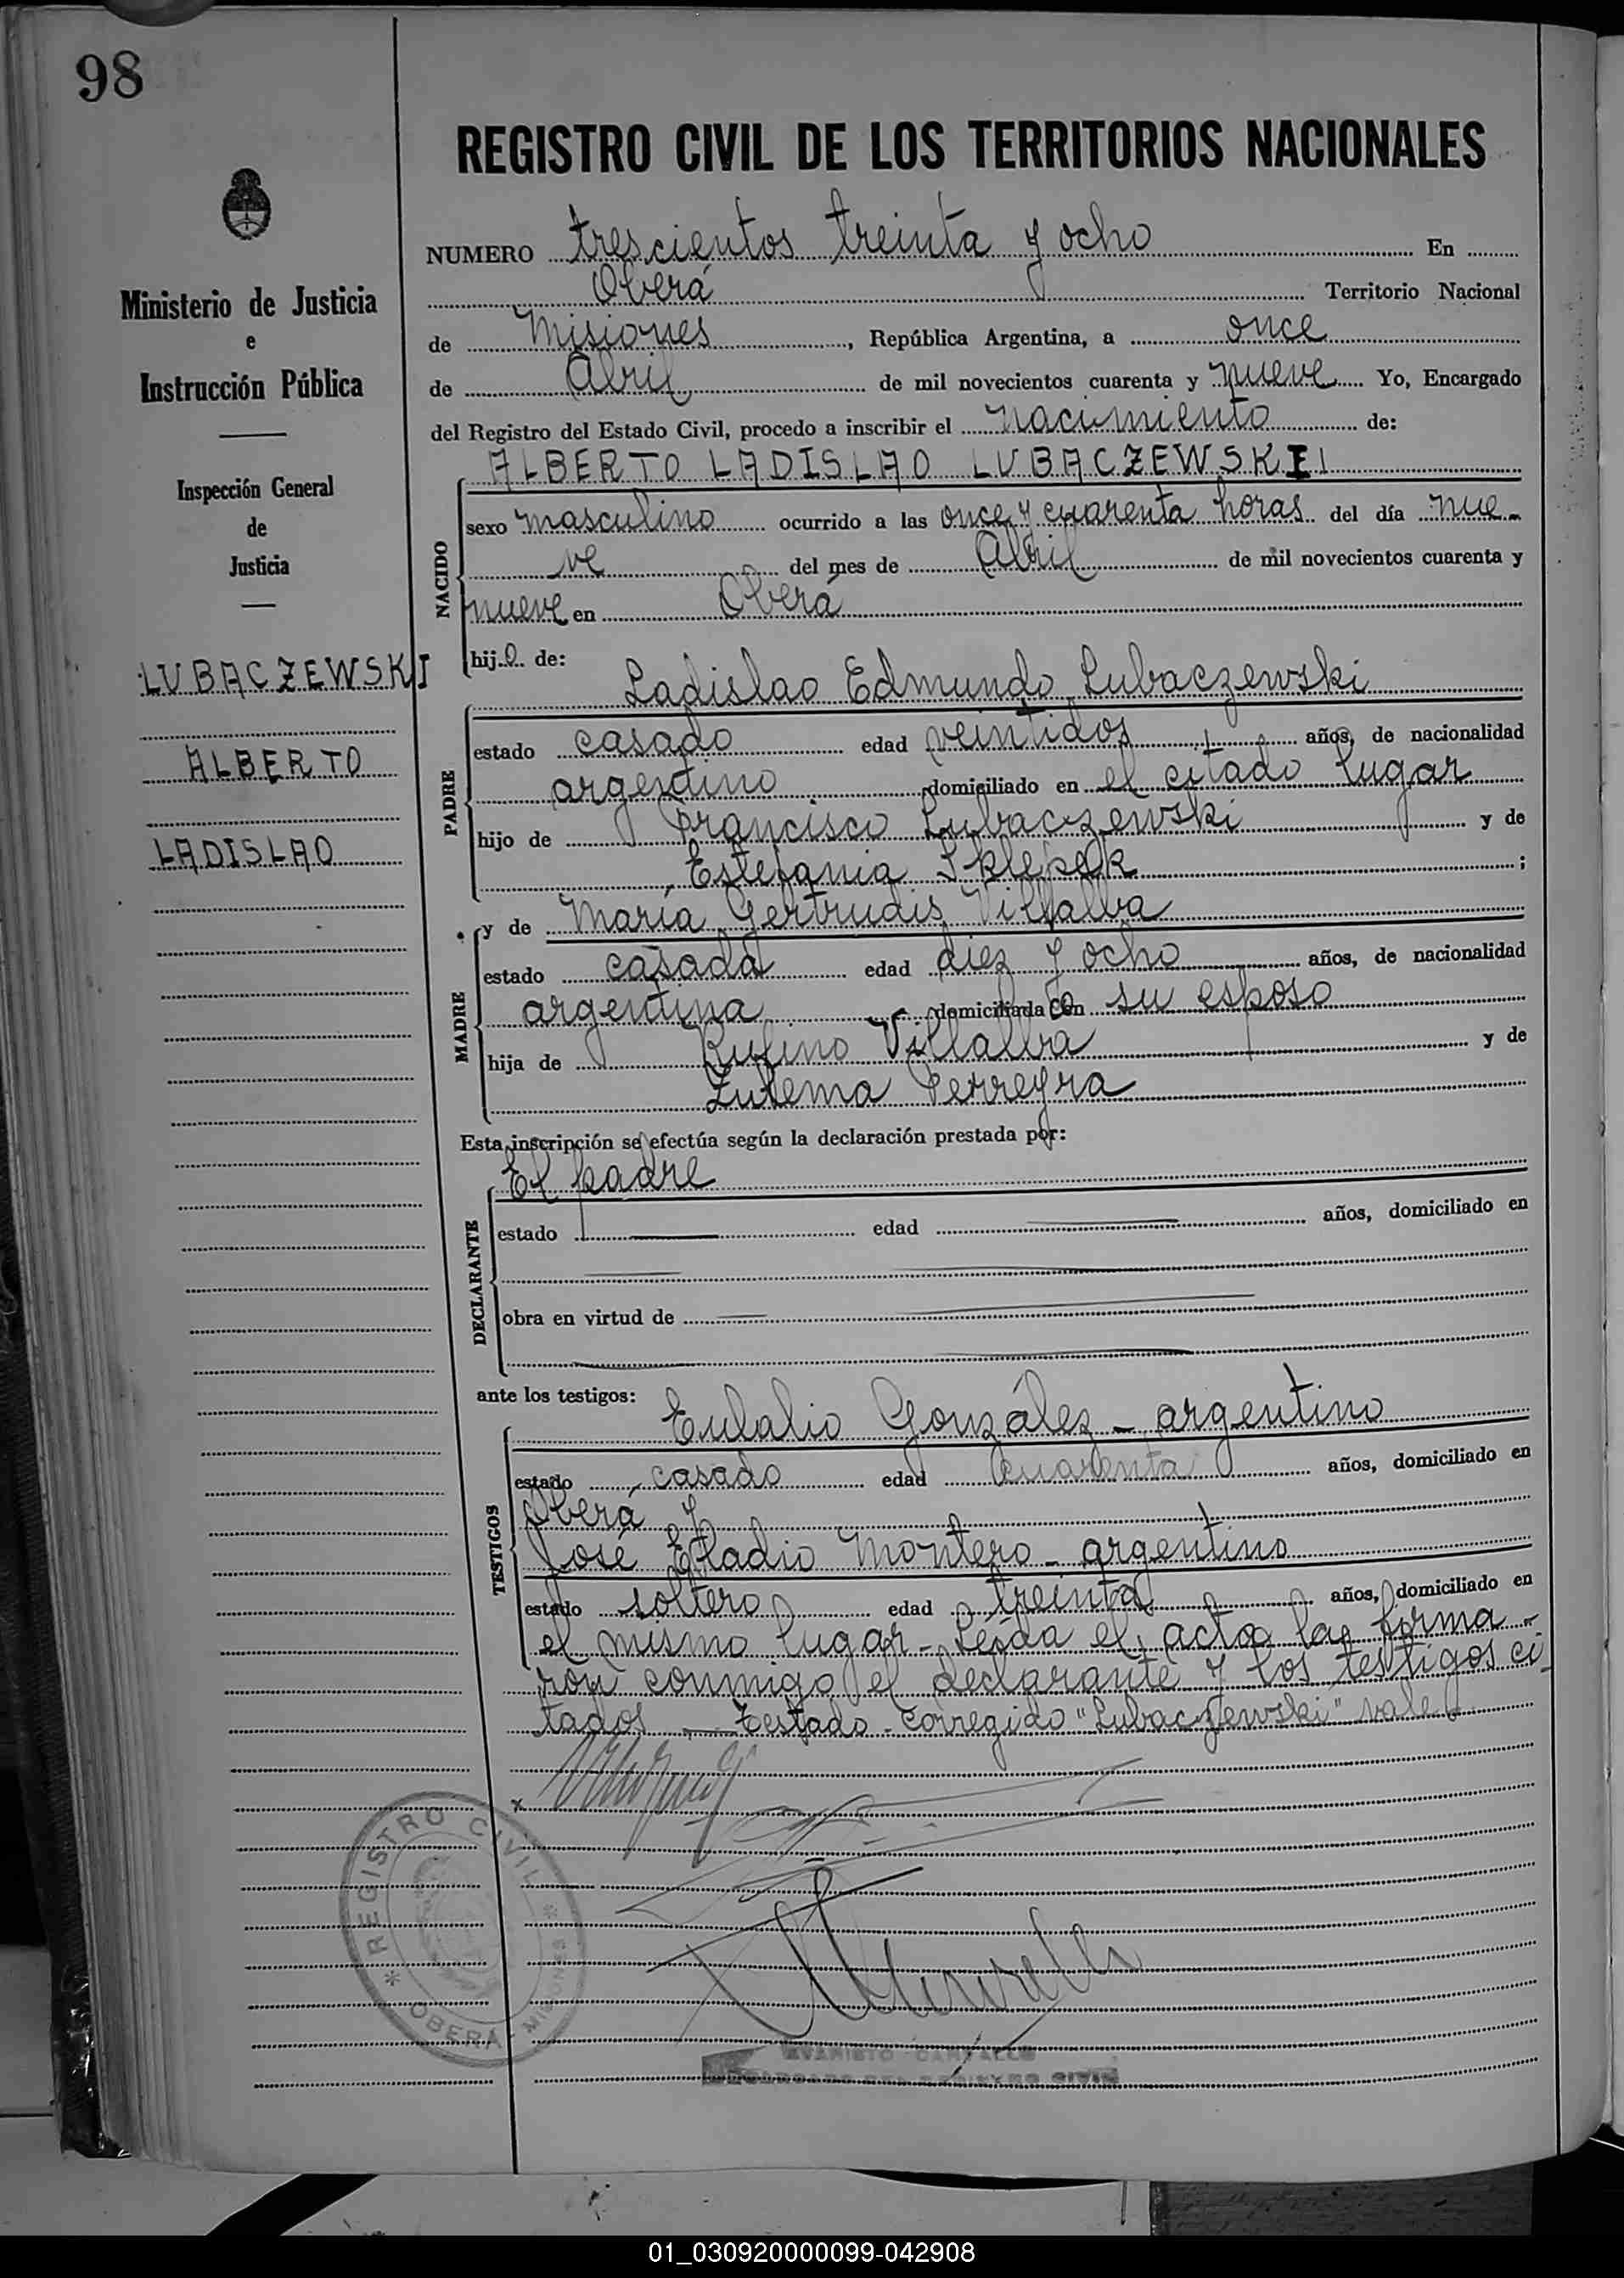 98
REGISTRO CIVIL DE LOS TERRITORIOS NACIONALES
Ministerio de Justicia
e
Instrucción Pública
Inspección General
de
Justicia
LUBACZEWSKI
ALBERTO
LADISLAO
NUMERO trescientos treinta y ocho En
Oberá Territorio Nacional
de Misiones, República Argentina, a once
de Abril de mil novecientos cuarenta y nueve Yo, Encargado
del Registro del Estado Civil, procedo a inscribir el nacimiento de:
ALBERTO LADISLAO LUBACZEWSKI
NACIDO
sexo masculino ocurrido a las once y cuarenta horas del día nue-
ve del mes de Abril de mil novecientos cuarenta y
nueve en Oberá
hijo de:
Ladislao Edmundo Lubaczewski
PADRE
estado casado edad veintidos años, de nacionalidad
argentino domiciliado en el citado lugar
hijo de Francisco Lubaczewski y de
Estefania ;
y de María Gertrudis Villalba
MADRE
estado casada edad diez y ocho años, de nacionalidad
argentina domiciliada con su esposo
hija de Rufino Villalba y de
Zulema Ferreyra
Esta inscripción se efectúa según la declaración prestada por:
El padre
DECLARANTE
estado edad años, domiciliado en
obra en virtud de
ante los testigos:
Eulalio González - argentino
TESTIGOS
estado casado edad cuarenta años, domiciliado en
Oberá y
José Eladio Montero - argentino
estado soltero edad treinta años, domiciliado en
el mismo lugar - Leída el acta la firma-
ron conmigo el declarante y los testigos ci-
tados - Testado - corregido "Lubaczewski" vale
REGISTRO CIVIL
OBERÁ - MISIONES
EVARISTO
ENCARGADO DEL REGISTRO CIVIL
01_030920000099-042908